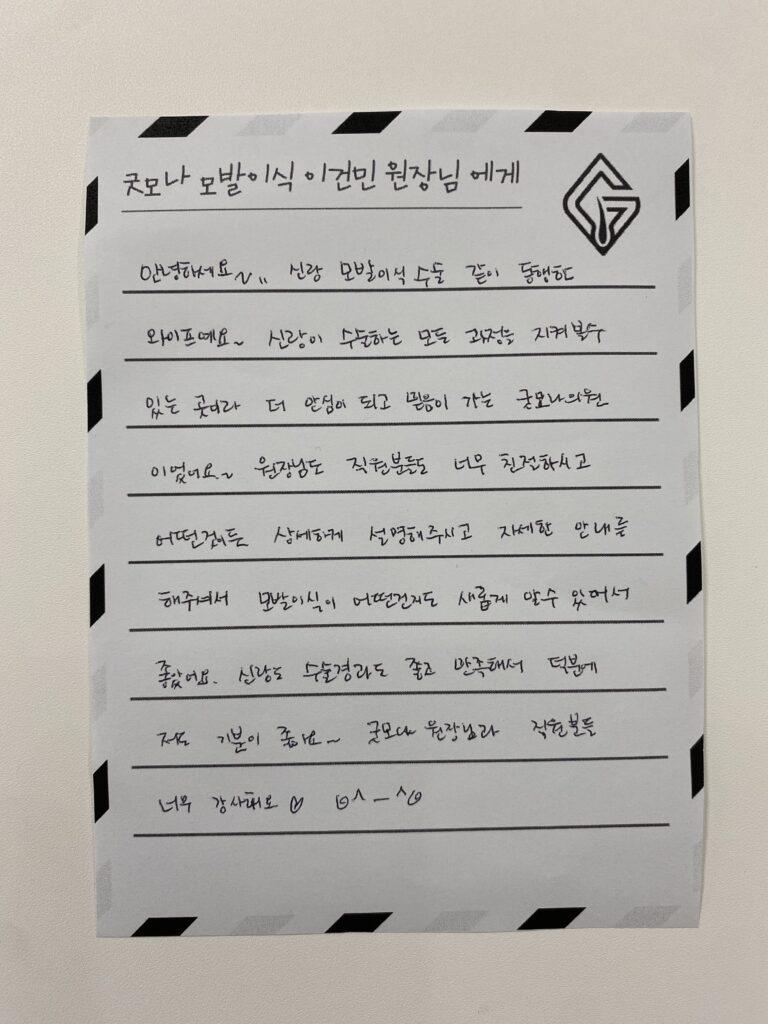 굿모나 모발이식 이건민 원장님 에게
안녕하세요~,, 신랑 모발이식 수술 같이 동행한
와이프예요~ 신랑이 수술하는 모든 과정을 지켜볼수
있는 곳이라 더 안심이 되고 믿음이 가는 굿모나의원
이었어요~ 원장님도 직원분들도 너무 친절하시고
어떤것이든 상세하게 설명해주시고 자세한 안내를
해주셔서 모발이식이 어떤건지도 새롭게 알수 있어서
좋았어요. 신랑도 수술경과도 좋고 만족해서 덕분에
저도 기분이 좋아요~ 굿모나 원장님과 직원분들
너무 감사해요 ♡ @^ー^@